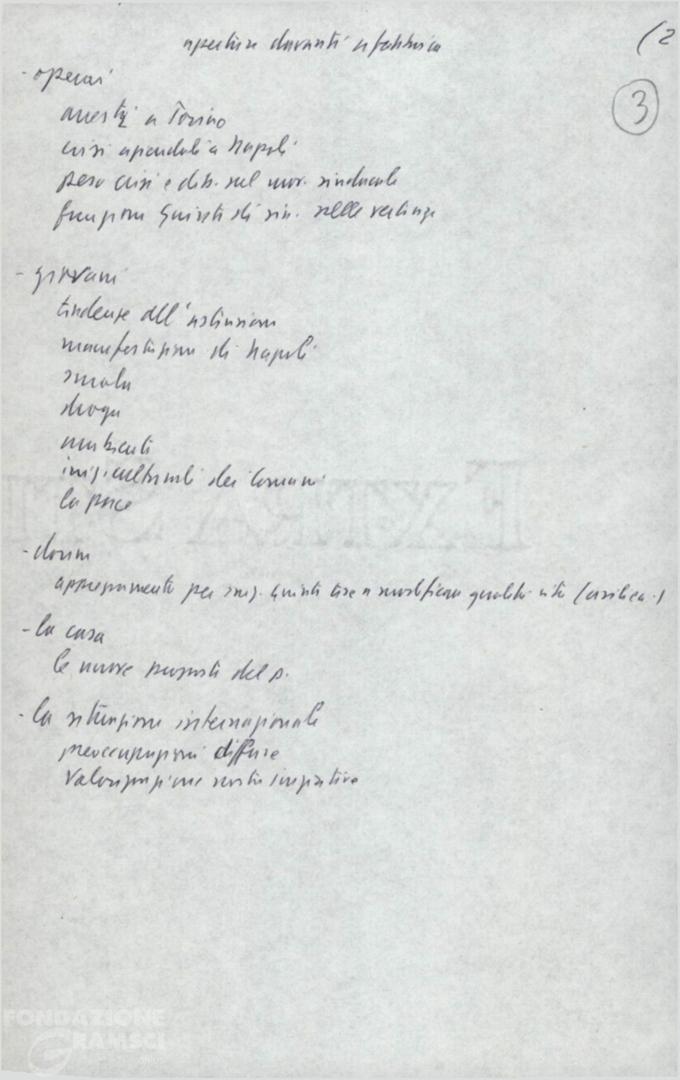 (2
aperture davanti a fabbrica
3
- operai
arresti a Torino
crisi aziendali a Napoli
peso crisi e dib. sul mov. sindacale
funzione quindi di
- giovani
tendenze all'astensione
manifestazione di Napoli
scuola
droga
ambienti
iniz. culturali dei Comuni
la pace
- donne
per quindi tese a modificare qualità vita
- la casa
le nuove proposte del p.
- la situazione internazionale
preoccupazioni diffuse
valorizzazione nostre iniziative
FONDAZIONE
GRAMSCI